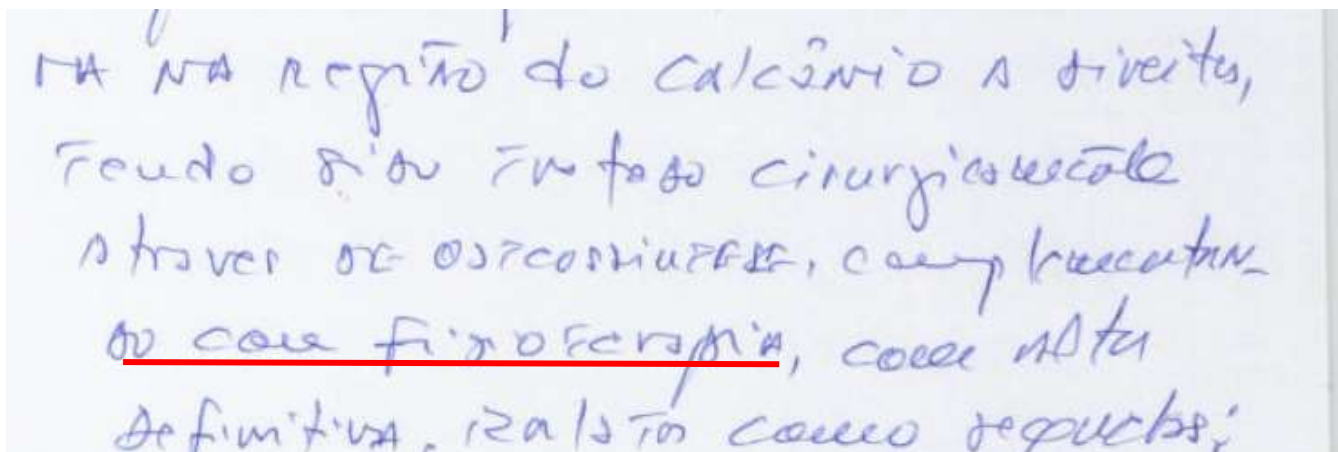 RA NA região do calcâneo a direita,
Tendo sido Tratado cirurgicamente
Atraves de osteossintese, complementan-
do com fisioterapia, com Alta
definitiva. relata como sequelas: